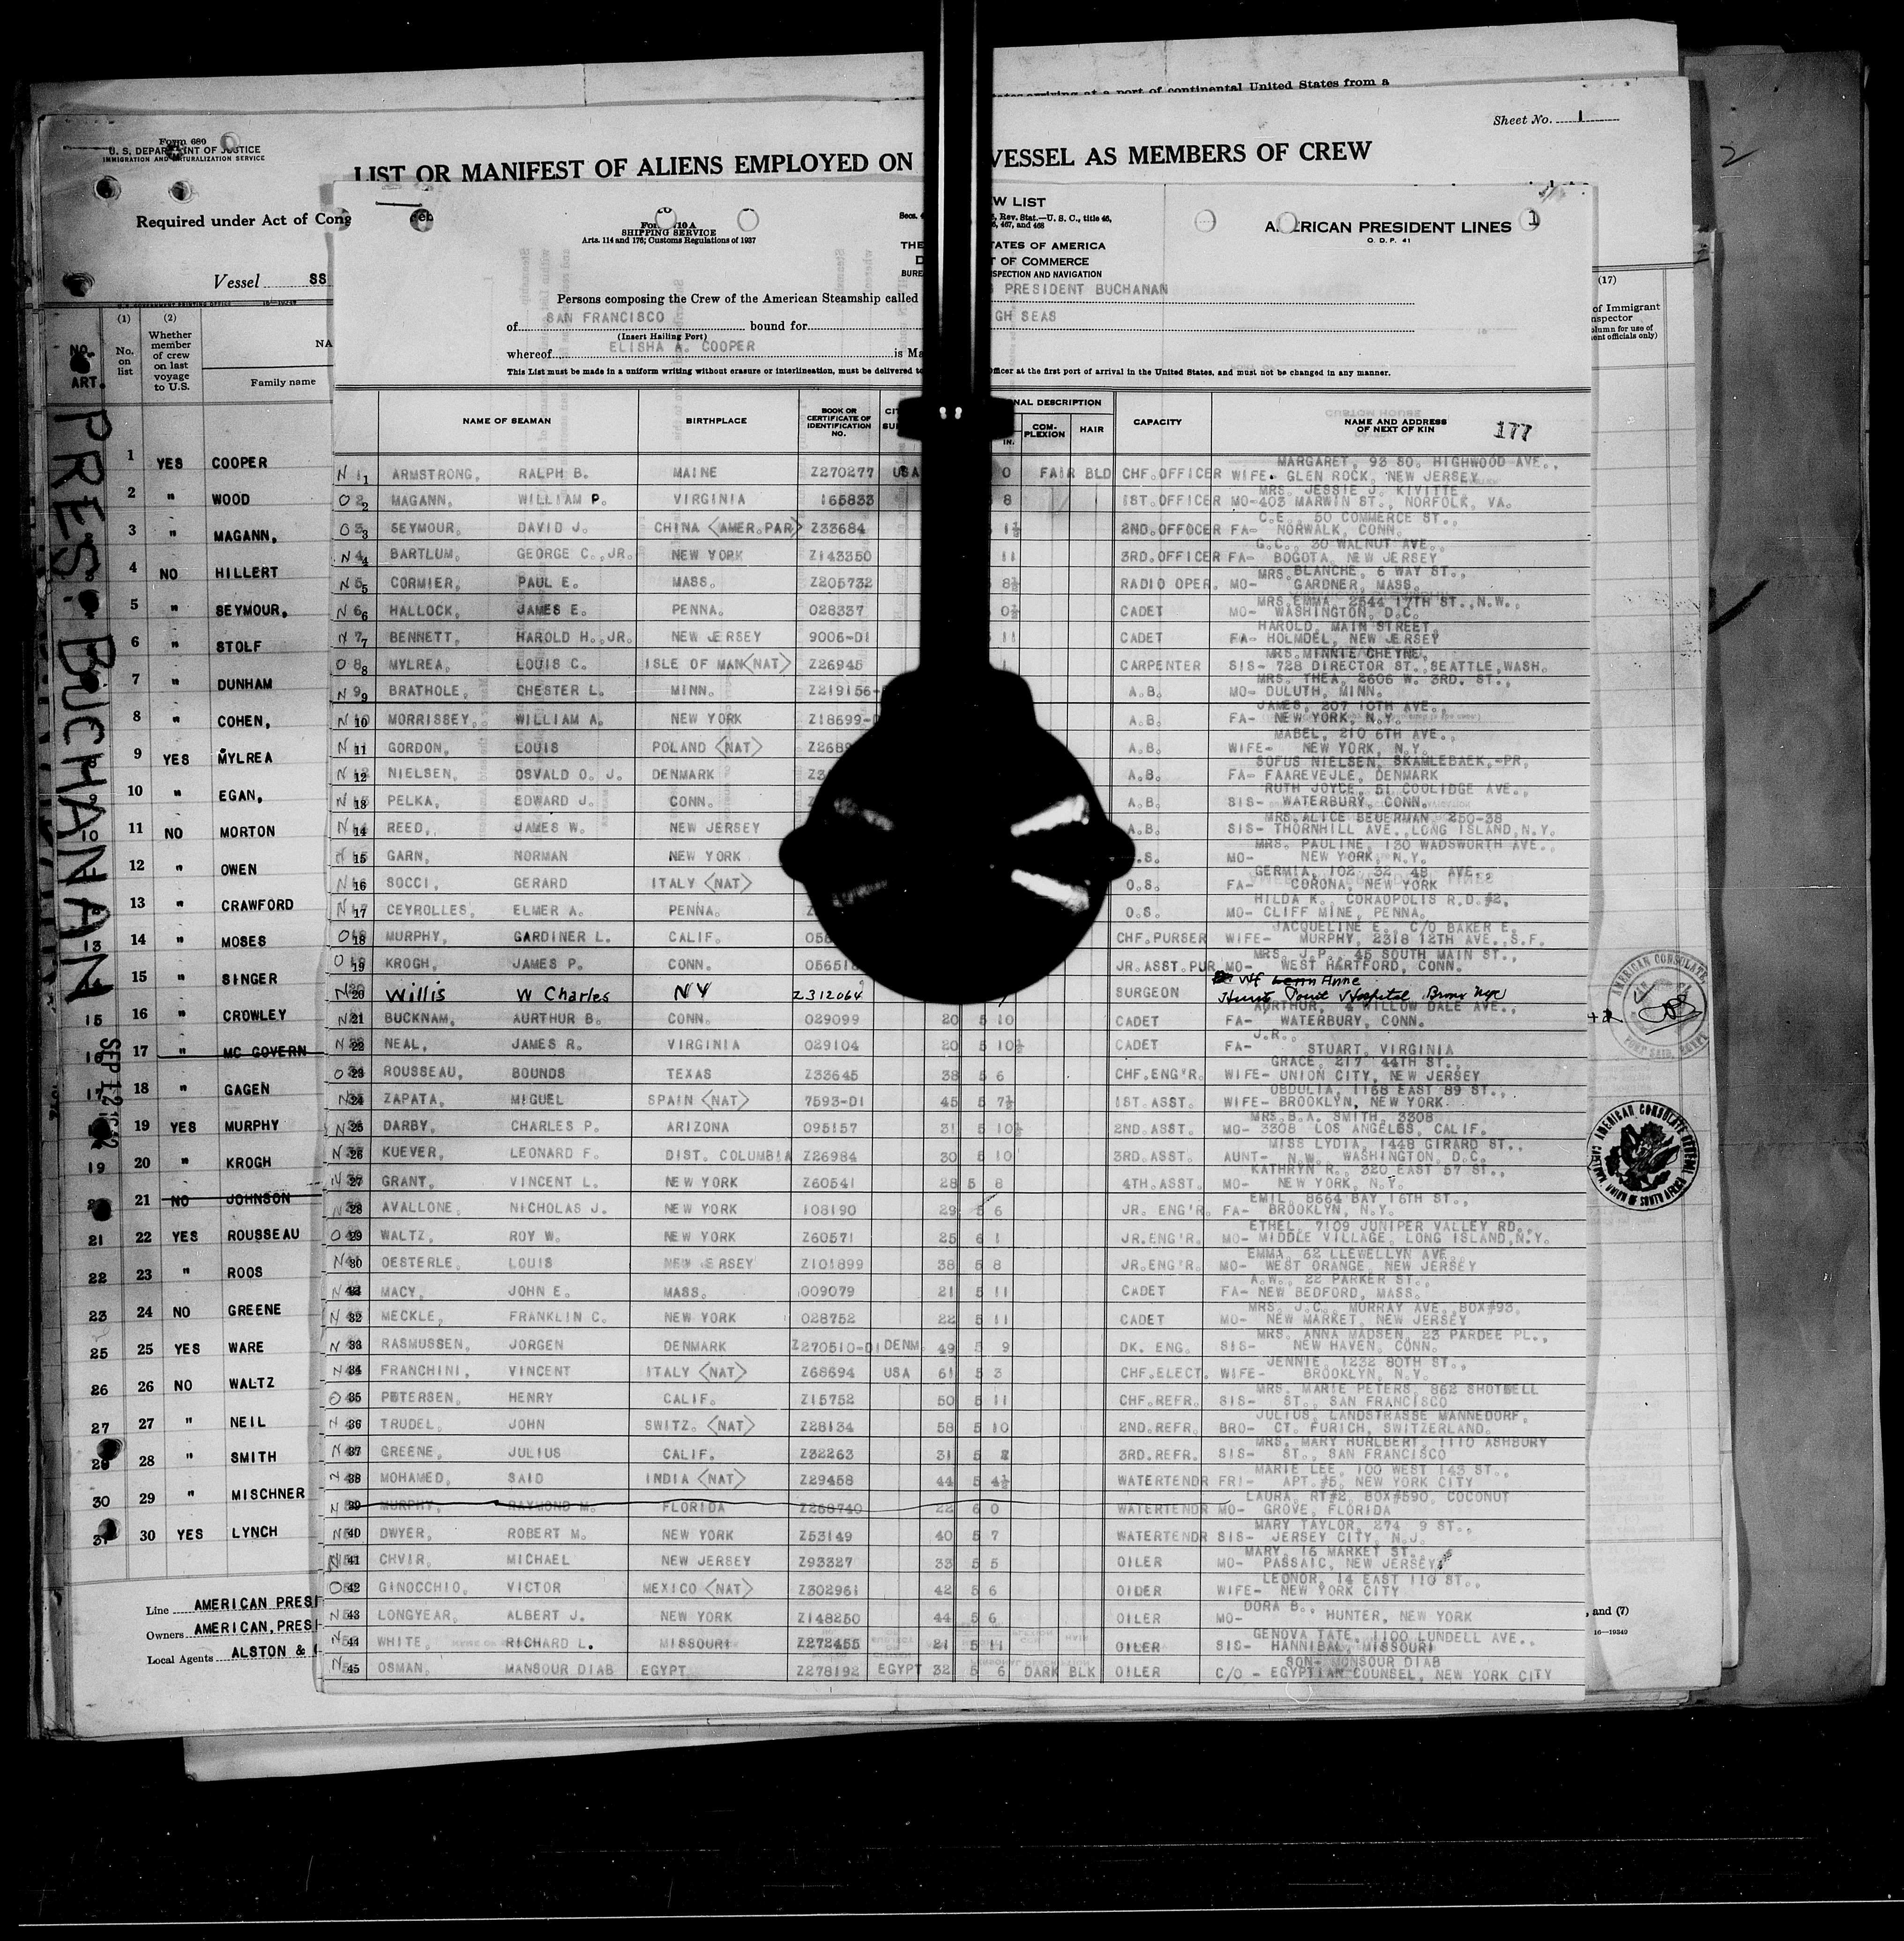 states arriving at a port of continental United States from a
Sheet No. 1
2
Form 680
U. S. DEPARTMENT OF JUSTICE
IMMIGRATION AND NATURALIZATION SERVICE
LIST OR MANIFEST OF ALIENS EMPLOYED ON VESSEL AS MEMBERS OF CREW
Required under Act of Cong
Vessel SS
(1) (2)
No. on list
Whether member of crew on last voyage to U.S.
NA
Family name
NO. ART.
PRES. BUCHANAN
SEP 12
1 YES COOPER
2 " WOOD
3 " MAGANN,
4 NO HILLERT
5 " SEYMOUR,
6 " STOLF
7 " DUNHAM
8 " COHEN,
9 YES MYLREA
10 " EGAN,
11 NO MORTON
12 " OWEN
13 " CRAWFORD
14 " MOSES
15 " SINGER
15 16 " CROWLEY
16 17 " MC GOVERN
17 18 " GAGEN
19 YES MURPHY
19 20 " KROGH
21 NO JOHNSON
21 22 YES ROUSSEAU
22 23 " ROOS
23 24 NO GREENE
25 25 YES WARE
26 26 NO WALTZ
27 27 " NEIL
28 28 " SMITH
30 29 " MISCHNER
31 30 YES LYNCH
Line AMERICAN PRESI
Owners AMERICAN, PRESI
Local Agents ALSTON &
SHIPPING SERVICE
Arts. 114 and 176; Customs Regulations of 1937
W LIST
Rev. Stat.—U. S. C., title 46,
467, and 468
THE TATES OF AMERICA
D T OF COMMERCE
BURE SPECTION AND NAVIGATION
AMERICAN PRESIDENT LINES 1
O. D. P. 41
Persons composing the Crew of the American Steamship called PRESIDENT BUCHANAN
of SAN FRANCISCO bound for GH SEAS
(Insert Hailing Port)
whereof ELISHA A. COOPER is Ma
This List must be made in a uniform writing without erasure or interlineation, must be delivered to officer at the first port of arrival in the United States, and must not be changed in any manner.
NAME OF SEAMAN BIRTHPLACE BOOK OR CERTIFICATE OF IDENTIFICATION NO. NAL DESCRIPTION IN. COMPLEXION HAIR CAPACITY NAME AND ADDRESS OF NEXT OF KIN 177
MARGARET, 93 SO. HIGHWOOD AVE.,
N 1 ARMSTRONG, RALPH B. MAINE Z270277 USA 0 FAIR BLD CHF.OFFICER WIFE- GLEN ROCK, NEW JERSEY
MRS. JESSIE J. KIVITTE
O 2 MAGANN, WILLIAM P. VIRGINIA 165833 8 1ST.OFFICER MO-403 MARWIN ST., NORFOLK, VA.
C.E., 50 COMMERCE ST.,
O 3 SEYMOUR, DAVID J. CHINA <AMER.PAR> Z33684 1½ 2ND.OFFOCER FA- NORWALK, CONN.
G.C., 30 WALNUT AVE.,
N 4 BARTLUM, GEORGE C.,JR. NEW YORK Z143350 11 3RD.OFFICER FA- BOGOTA, NEW JERSEY
MRS. BLANCHE, 6 WAY ST.,
N 5 CORMIER, PAUL E. MASS. Z205732 8½ RADIO OPER. MO- GARDNER, MASS.
MRS.EMMA, 2544 17TH ST.,N.W.,
N 6 HALLOCK, JAMES E. PENNA. 028337 0½ CADET MO- WASHINGTON, D.C.
HAROLD, MAIN STREET,
N 7 BENNETT, HAROLD H.,JR. NEW JERSEY 9006-D1 11 CADET FA- HOLMDEL, NEW JERSEY
MRS.MINNIE CHEYNE,
O 8 MYLREA, LOUIS C. ISLE OF MAN<NAT> Z26945 CARPENTER SIS- 728 DIRECTOR ST.,SEATTLE,WASH.
MRS. THEA, 2606 W. 3RD. ST.,
N 9 BRATHOLE, CHESTER L. MINN. Z219156- A.B. MO- DULUTH, MINN.
JAMES, 207 10TH AVE.,
N 10 MORRISSEY, WILLIAM A. NEW YORK Z18699-D A.B. FA- NEW YORK, N.Y.
MABEL, 210 6TH AVE.,
N 11 GORDON, LOUIS POLAND <NAT> Z268 A.B. WIFE- NEW YORK, N.Y.
SOFUS NIELSEN, SKAMLEBAEK,-PR,
N 12 NIELSEN, OSVALD O. J. DENMARK Z3 A.B. FA- FAAREVEJLE, DENMARK
RUTH JOYCE, 51 COOLIDGE AVE.,
N 13 PELKA, EDWARD J. CONN. A.B. SIS- WATERBURY, CONN.
MRS.ALICE BEUERMAN, 250-38
N 14 REED, JAMES W. NEW JERSEY A.B. SIS- THORNHILL AVE.,LONG ISLAND,N.Y.
MRS. PAULINE, 130 WADSWORTH AVE.,
N 15 GARN, NORMAN NEW YORK .S. MO- NEW YORK, N.Y.
GERMIA, 102 32 48 AVE.,
N 16 SOCCI, GERARD ITALY <NAT> O.S. FA- CORONA, NEW YORK
HILDA K., CORAOPOLIS R.D.#2,
N 17 CEYROLLES, ELMER A. PENNA. O.S. MO- CLIFF MINE, PENNA.
JACQUELINE E., C/O BAKER E.
O 18 MURPHY, GARDINER L. CALIF. 058 CHF.PURSER WIFE- MURPHY, 2318 12TH AVE.,S.F.
MRS. J.P., 45 SOUTH MAIN ST.,
O 19 KROGH, JAMES P. CONN. 056518 JR.ASST.PUR MO- WEST HARTFORD, CONN.
Wf Anne
N 20 Willis W Charles NY Z312064 SURGEON Hunts Point Hospital Bronx Nyc
AURTHUR, 4 WILLOW DALE AVE.,
N 21 BUCKNAM, AURTHUR B. CONN. 029099 20 5 10 CADET FA- WATERBURY, CONN.
J.R.,
N 22 NEAL, JAMES R. VIRGINIA 029104 20 5 10½ CADET FA- STUART, VIRGINIA
GRACE, 217 44TH ST.,
O 23 ROUSSEAU, BOUNDS TEXAS Z33645 38 5 6 CHF.ENG'R. WIFE- UNION CITY, NEW JERSEY
OBDULIA, 1168 EAST 89 ST.,
N 24 ZAPATA, MIGUEL SPAIN <NAT> 7593-D1 45 5 7½ 1ST.ASST. WIFE- BROOKLYN, NEW YORK
MRS.B.A. SMITH, 3308
N 25 DARBY, CHARLES P. ARIZONA 095157 31 5 10½ 2ND.ASST. MO- 3308 LOS ANGELES, CALIF.
MISS LYDIA, 1448 GIRARD ST.,
N 26 KUEVER, LEONARD F. DIST. COLUMBIA Z26984 30 5 10 3RD.ASST. AUNT- N.W. WASHINGTON, D.C.
KATHRYN R., 320 EAST 57 ST.,
N 27 GRANT, VINCENT L. NEW YORK Z60541 28 5 8 4TH.ASST. MO- NEW YORK, N.Y.
EMIL, 8664 BAY 16TH ST.,
N 28 AVALLONE, NICHOLAS J. NEW YORK 108190 29 5 6 JR. ENG'R. FA- BROOKLYN, N.Y.
ETHEL, 7109 JUNIPER VALLEY RD.,
O 29 WALTZ, ROY W. NEW YORK Z60571 25 6 1 JR.ENG'R. MO- MIDDLE VILLAGE, LONG ISLAND,N.Y.
EMMA, 62 LLEWELLYN AVE.,
N 30 OESTERLE, LOUIS NEW JERSEY Z101899 38 5 8 JR.ENG'R. MO- WEST ORANGE, NEW JERSEY
A.W., 22 PARKER ST.,
N MACY, JOHN E. MASS. 009079 21 5 11 CADET FA- NEW BEDFORD, MASS.
MRS. J.C., MURRAY AVE.,BOX#93,
N 32 MECKLE, FRANKLIN C. NEW YORK 028752 22 5 11 CADET MO- NEW MARKET, NEW JERSEY
MRS. ANNA MADSEN, 23 PARDEE PL.,
N 33 RASMUSSEN, JORGEN DENMARK Z270510-D1 DENM. 49 5 9 DK. ENG. SIS- NEW HAVEN, CONN.
JENNIE, 1232 80TH ST.,
N 34 FRANCHINI, VINCENT ITALY <NAT> Z68694 USA 61 5 3 CHF.ELECT. WIFE- BROOKLYN, N.Y.
MRS. MARIE PETERS, 862 SHOTWELL
O 35 PETERSEN, HENRY CALIF. Z15752 50 5 11 CHF.REFR. SIS- ST., SAN FRANCISCO
JULIUS, LANDSTRASSE MANNEDORF,
N 36 TRUDEL, JOHN SWITZ. <NAT> Z28134 58 5 10 2ND.REFR. BRO- CT. FURICH, SWITZERLAND.
MRS. MARY HURLBERT, 1110 ASHBURY
N 37 GREENE, JULIUS CALIF. Z32263 31 5 3RD.REFR. SIS- ST., SAN FRANCISCO
MARIE LEE, 100 WEST 143 ST.,
N 38 MOHAMED, SAID INDIA <NAT> Z29458 44 5 4½ WATERTENDR FRI- APT.#5, NEW YORK CITY
LAURA, RT#2, BOX#590, COCONUT
N 39 MURPHY, RAYMOND M. FLORIDA Z258740 22 6 0 WATERTENDR MO- GROVE, FLORIDA
MARY TAYLOR, 274 9 ST.,
N 40 DWYER, ROBERT M. NEW YORK Z53149 40 5 7 WATERTENDR SIS- JERSEY CITY, N.J.
MARY, 16 MARKET ST.,
N 41 CHVIR, MICHAEL NEW JERSEY Z93327 33 5 5 OILER MO- PASSAIC, NEW JERSEY
LEONOR, 14 EAST 110 ST.,
O 42 GINOCCHIO, VICTOR MEXICO <NAT> Z302961 42 5 6 OIDER WIFE- NEW YORK CITY
DORA B.,
N 43 LONGYEAR, ALBERT J. NEW YORK Z148250 44 5 6 OILER MO- HUNTER, NEW YORK
GENOVA TATE, 1100 LUNDELL AVE.,
N 44 WHITE, RICHARD L. MISSOURI Z272455 21 5 11 OILER SIS- HANNIBAL, MISSOURI
SON- MONSOUR DIAB
N 45 OSMAN, MANSOUR DIAB EGYPT Z278192 EGYPT 32 5 6 DARK BLK OILER C/O - EGYPTIAN COUNSEL, NEW YORK CITY
(17)
of Immigrant
nspector
olumn for use of
ent officials only)
AMERICAN CONSULATE
PORT SAID, EGYPT
AMERICAN CONSULATE GENERAL
CAPETOWN, UNION OF SOUTH AFRICA
, and (7)
16—19349